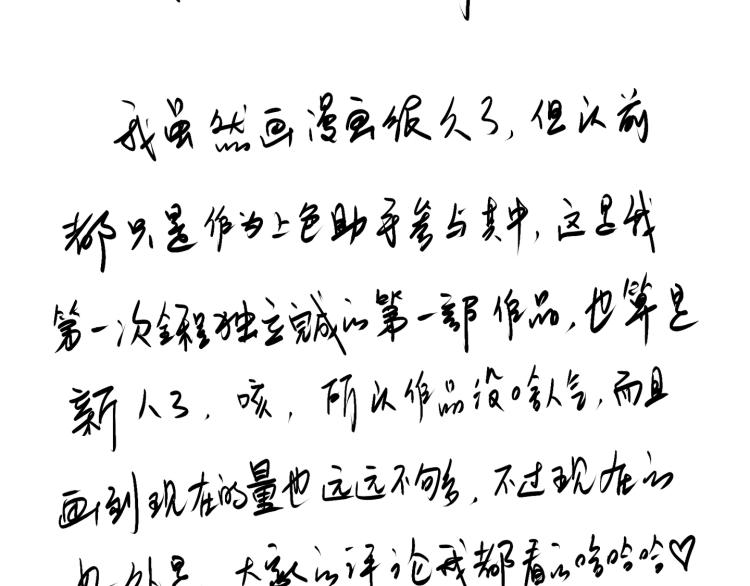 我虽然画漫画很久了，但以前
都只是作为上色助手参与其中，这是我
第一次全程独立完成的第一部作品，也算是
新人了，咳，所以作品没啥人气，而且
画到现在的量也远远不够多，不过现在的
好处是，大家的评论我都看的哈哈哈♡